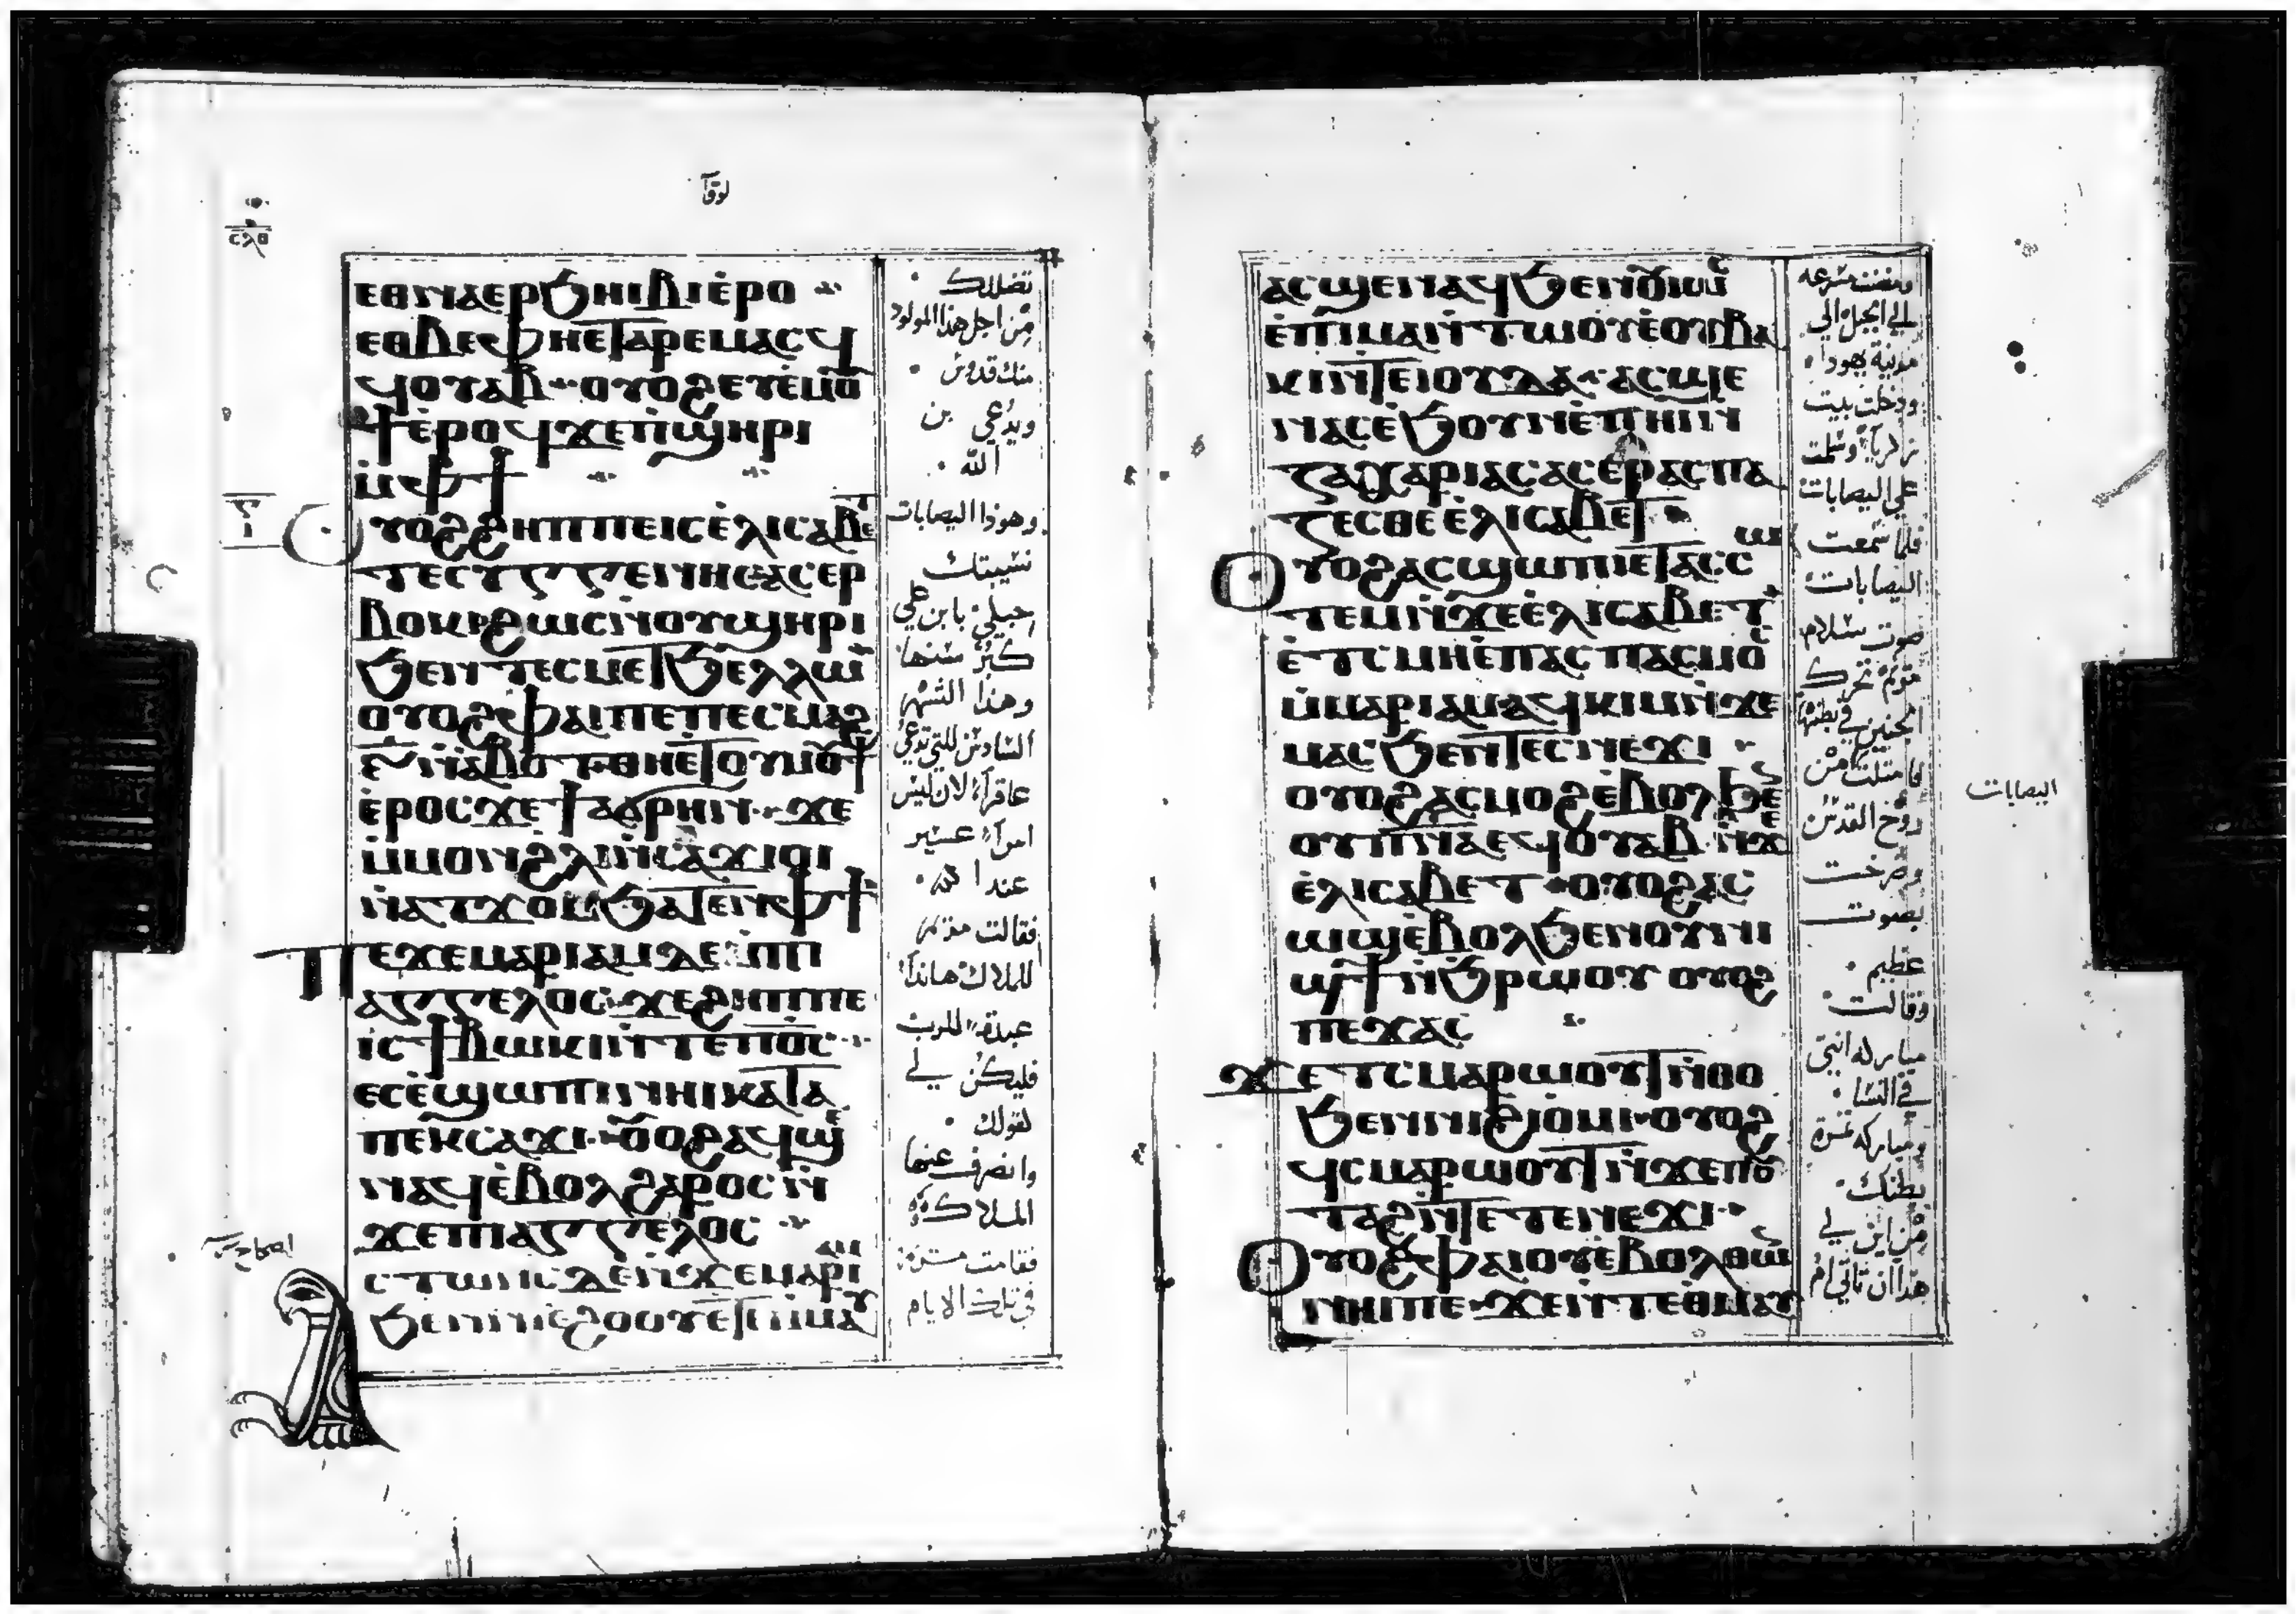 لوقا
ⲥⲗⲑ
ⲉⲑⲛⲁⲉⲣϧⲏⲓⲃⲓⲉ̀ⲣⲟ
ⲉⲑⲃⲉⲫⲏⲉⲧⲁⲣⲉⲙⲁⲥϥ
ϥⲟⲩⲁⲃ ⲟⲩⲟϩⲉⲩⲉ̀ⲙⲟ
ϯⲉ̀ⲣⲟϥϫⲉⲡ̀ϣⲏⲣⲓ
ⲙ̀ⲫϯ
ⲟⲩⲟϩϩⲏⲡⲡⲉⲓⲥⲉ̀ⲗⲓⲥⲁⲃⲉ
ⲧⲉⲥⲩⲅⲅⲉⲛⲏⲥⲁⲥⲉⲣ
ⲃⲟⲕⲓϩⲱⲥⲛ̀ⲟⲩϣⲏⲣⲓ
ϧⲉⲛⲧⲉⲥⲙⲉⲧϧⲉⲗⲗⲱ
ⲟⲩⲟϩⲫⲁⲓⲡⲉⲡⲉⲥⲙⲁϩ
ⲋ̅ⲛ̀ⲁⲃⲟⲧⲑⲏⲉⲧⲟⲩⲙⲟϯ
ⲉ̀ⲣⲟⲥϫⲉϯⲁϭⲣⲏⲛ ϫⲉ
ⲙ̀ⲙⲟⲛϩⲗⲓⲛ̀ⲥⲁϫⲓⲟⲓ
ⲛ̀ⲁⲧϫⲟⲙϧⲁⲧⲉⲛⲫϯ
ⲡⲉϫⲉⲙⲁⲣⲓⲁⲙⲇⲉⲙ̀ⲡⲓ
ⲁⲅⲅⲉⲗⲟⲥ ϫⲉϩⲏⲡⲡⲉ
ⲓⲥϯⲃⲱⲕⲓⲛ̀ⲧⲉⲡⲟ̅ⲥ̅
ⲉⲥⲉ̀ϣⲱⲡⲓⲛⲏⲓⲕⲁⲧⲁ
ⲡⲉⲕⲥⲁϫⲓ ⲟⲩⲟϩⲁϥϣⲉ
ⲛⲁϥⲉ̀ⲃⲟⲗϩⲁⲣⲟⲥⲛ̀
ϫⲉⲡⲓⲁⲅⲅⲉⲗⲟⲥ
ⲁⲥⲧⲱⲛⲥⲇⲉⲛ̀ϫⲉⲙⲁⲣⲓⲁⲙ
ϧⲉⲛⲛⲓⲉϩⲟⲟⲩⲉⲧⲉⲙⲙⲁⲩ
تضللك
من اجل هذا المولود
منك قدوس
ويدعي بن
الله
وهوذا اليصابات
نسيبتك
حبلي بابن علي
كبر سنها
وهذا الشهر
السادس للتي تدعي
عاقرا لان ليس
امراه عسير
عند الله
فقالت مريم
للملاك هاندا
عبدة للرب
فليكن لي
لقولك
وانصرف عنها
الملاك
فقامت مريم
في تلك الايام
ⲁⲥϣⲉⲛⲁⲥϧⲉⲛⲟⲩⲓⲱⲥ
ⲉ̀ⲡⲓⲙⲁⲛ̀ⲧⲱⲟⲩⲉ̀ⲟⲩⲃⲁ
ⲕⲓⲛ̀ⲧⲉⲓⲟⲩⲇⲁ ⲁⲥϣⲉ
ⲛⲁⲥⲉ̀ϧⲟⲩⲛⲉ̀ⲡⲏⲓⲛ
ⲍⲁⲭⲁⲣⲓⲁⲥⲁⲥⲉⲣⲁⲥⲡⲁ
ⲍⲉⲥⲑⲉⲉ̀ⲗⲓⲥⲁⲃⲉⲧ
ⲟⲩⲟϩⲁⲥϣⲱⲡⲓⲉⲧⲁⲥⲥⲱ
ⲧⲉⲙⲛ̀ϫⲉⲉ̀ⲗⲓⲥⲁⲃⲉⲧ
ⲉ̀ⲧⲥⲙⲏⲉ̀ⲡⲁⲥⲡⲁⲥⲙⲟ
ⲙ̀ⲙⲁⲣⲓⲁⲙⲁϥⲕⲓⲙⲛ̀ϫⲉ
ⲙⲁⲥϧⲉⲛⲧⲉⲥⲛⲉϫⲓ
ⲟⲩⲟϩⲁⲥⲙⲟϩⲉ̀ⲃⲟⲗϧⲉ
ⲟⲩⲡ̅ⲛ̅ⲁ̅ⲉϥⲟⲩⲁⲃ ⲛ̀ϫⲉ
ⲉ̀ⲗⲓⲥⲁⲃⲉⲧ ⲟⲩⲟϩⲁⲥ
ⲱϣⲉ̀ⲃⲟⲗϧⲉⲛⲟⲩⲛⲓ
ϣϯⲛ̀ϧⲣⲱⲟⲩ ⲟⲩⲟϩ
ⲡⲉϫⲁⲥ
ϫⲉⲧⲥⲙⲁⲣⲱⲟⲩⲧⲛ̀ⲑⲟ
ϧⲉⲛⲛⲓϩⲓⲟ̀ⲙⲓ ⲟⲩⲟϩ
ϥⲥⲙⲁⲣⲱⲟⲩⲧⲛ̀ϫⲉⲡⲟⲩ
ⲧⲁϩⲛ̀ⲧⲉⲧⲉⲛⲉϫⲓ
ⲟⲩⲟϩⲫⲁⲓⲟⲩⲉ̀ⲃⲟⲗⲑⲱⲛ
ⲛⲏⲓⲡⲉ ϫⲉⲛ̀ⲧⲉⲑⲙⲁⲩ
ومضت مسرعه
الي الجبل الي
مدينة يهودا
ودخلت بيت
زكريا وسلمت
علي اليصابات
فلما سمعت
اليصابات
صوت سلام
مريم تحرك
الجنين في بطنها
فامتلت من
روح القدس
وصرخت
بصوت
عظيم
وقالت
مباركه انتي
في النسا
ومباركه ثمرة
بطنك
من اين لي
هذا ان تاتي ام
اليصابات